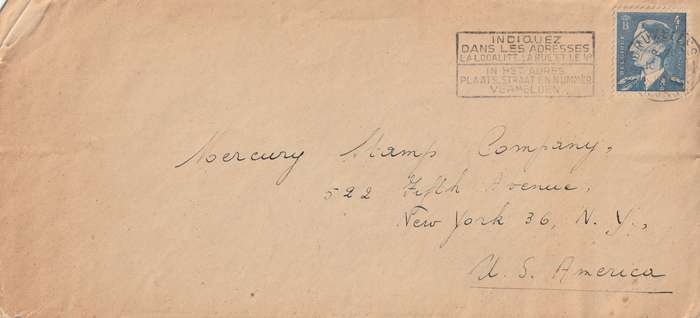 INDIQUEZ
DANS LES ADRESSES
LA LOCALITÉ, LA RUE ET LE Nº
IN HET ADRES
PLAATS, STRAAT EN NUMMER
VERMELDEN
B
4F
BELGIQUE
Mercury Stamp Company,
522 Fifth Avenue,
New York 36, N. Y.,
U. S. America